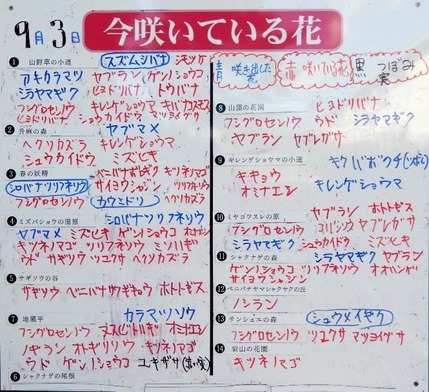 9月3日 今咲いている花
青 咲き出した花 赤 咲いている花 黒 つぼみ 実
1 山野草の小道 スズムシバナ シモツケ
アキカラマツ ヤブラン ゲンノショウコ
シラヤマギク ヒヨドリバナ トウバナ
フシグロセンノウ キレンゲショウマ キバナアキギリ
ヒヨドリバナ シュウカイドウ マツヨイグサ
2 升麻の森 ヤブマメ
ヘクソカズラ キレンゲショウマ
シュウカイドウ ミズヒキ
3 春の妖精 ベニバナゲンノショウコ キツネノマゴ
シロバナツリフネソウ サイヨウシャジン ツリフネソウ
フシグロセンノウ カワミドリ ヘクソカズラ
4 ミズバショウの湿原 シロバナツリフネソウ
ヤブマメ ミズヒキ ゲンノショウコ オミナエシ
キツネノマゴ ツリフネソウ ミソハギ
ウド サギソウ ツユクサ ヘクソカズラ
5 サギソウの谷
サギソウ ベニバナサワギキョウ ホトトギス
7 地蔵平 カラマツソウ
フシグロセンノウ ヌスビトハギ オミナエシ
ノギラン オトギリソウ キツネノマゴ
ウド ゲンノショウコ ユキザサ
6 シャクナゲの尾根
8 山頂の花園 ヒヨドリバナ
フシグロセンノウ ウド シラヤマギク
ヤブラン ヤブレガサ
9 キレンゲショウマの小道
キキョウ
オミナエシ キレンゲショウマ
10 ミヤコワスレの原 ヤブラン ホトトギス
フシグロセンノウ ヤブレガサ
シラヤマギク シュウカイドウ ミズヒキ
11 シャクナゲの森 シラヤマギク ヤブラン
ゲンノショウコ ツリフネソウ オオハンゲ
サイヨウシャジン
12 ベニバナヤマシャクヤクの丘
ノシラン
13 サンシュユの森 シュウメイギク
フシグロセンノウ ツユクサ マツヨイグサ
14 岩山の花園
キツネノマゴ